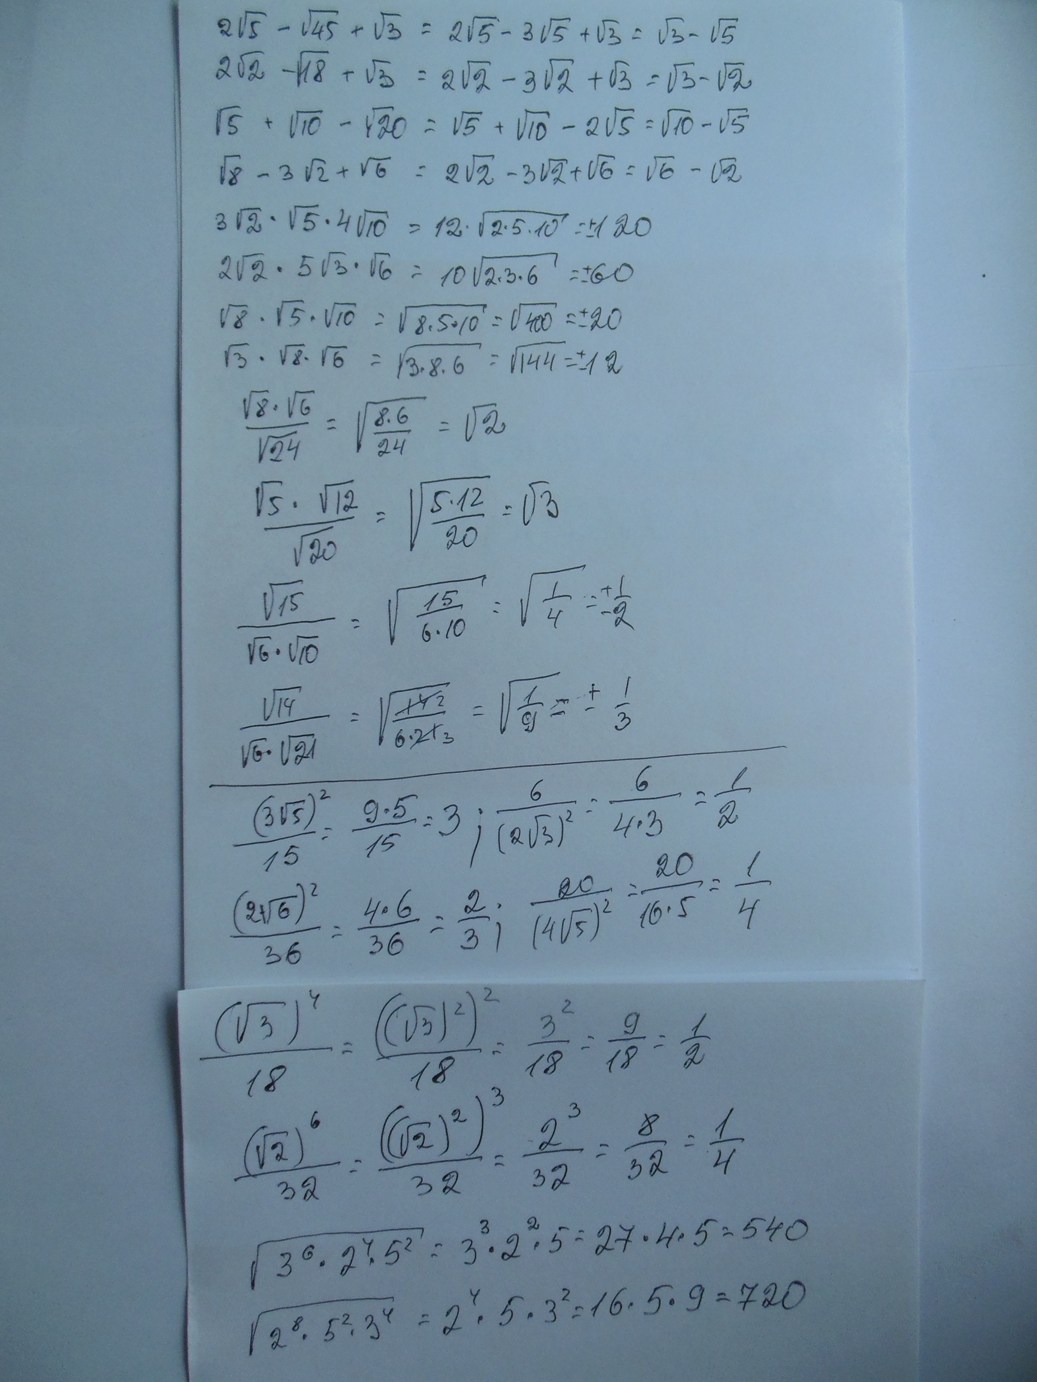 2√5 - √45 + √3 = 2√5 - 3√5 + √3 = √3 - √5
2√2 - √18 + √3 = 2√2 - 3√2 + √3 = √3 - √2
√5 + √10 - √20 = √5 + √10 - 2√5 = √10 - √5
√8 - 3√2 + √6 = 2√2 - 3√2 + √6 = √6 - √2
3√2 · √5 · 4√10 = 12 · √(2·5·10) = ±120
2√2 · 5√3 · √6 = 10√(2·3·6) = ±60
√8 · √5 · √10 = √(8·5·10) = √400 = ±20
√3 · √8 · √6 = √(3·8·6) = √144 = ±12
(√8·√6)/√24 = √((8·6)/24) = √2
(√5 · √12)/√20 = √((5·12)/20) = √3
√15/(√6·√10) = √(15/(6·10)) = √(1/4) = ±1/2
√14/(√6·√21) = √(14 2/(6·21 3)) = √(1/9) = ± 1/3
(3√5)²/15 = (9·5)/15 = 3 ; 6/(2√3)² = 6/(4·3) = 1/2
(2√6)²/36 = (4·6)/36 = 2/3 ; 20/(4√5)² = 20/(16·5) = 1/4
(√3)⁴/18 = ((√3)²)²/18 = 3²/18 = 9/18 = 1/2
(√2)⁶/32 = ((√2)²)³/32 = 2³/32 = 8/32 = 1/4
√(3⁶·2⁴·5²) = 3³·2²·5 = 27·4·5 = 540
√(2⁸·5²·3⁴) = 2⁴·5·3² = 16·5·9 = 720